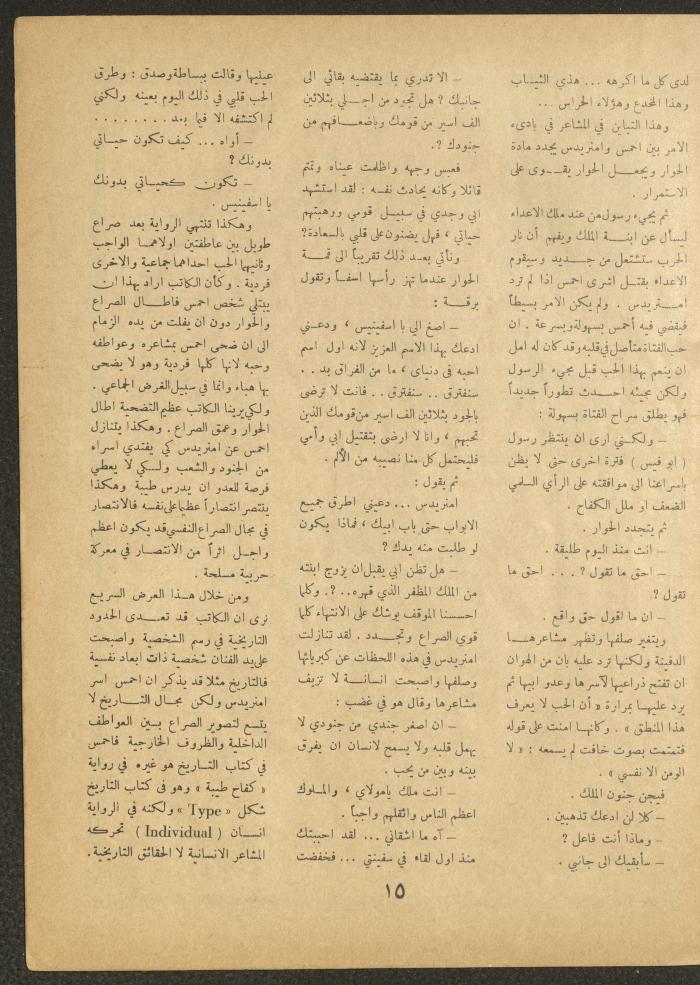 لدى كل ما اكرهه ... هذي الثياب
وهذا المخدع وهؤلاء الحراس ...
وهذا التباين في المشاعر في بادىء
الامر بين احمس وامنريدس يجدد مادة
الحوار ويجعل الحوار يقوى على
الاستمرار .
ثم يجيء رسول من عند ملك الاعداء
ليسأل عن ابنة الملك ويفهم أن نار
الحرب ستشتعل من جديد وسيقوم
الاعداء بقتل اشرى احمس اذا لم ترد
امنريدس . ولم يكن الامر بسيطاً
فيقضي فيه أحمس بسهولة وبسرعة . ان
حب الفتاة متأصل في قلبه وقد كان له امل
ان ينعم بهذا الحب قبل مجيء الرسول
ولكن مجيئه احدث تطوراً جديداً
فهو يطلق سراح الفتاة بسهولة :
– ولكني ارى ان ينتظر رسول
( ابو فيس ) فترة اخرى حتى لا يظن
باسراعنا الى موافقته على الرأي السلمي
الضعف او ملل الكفاح .
ثم يتجدد الحوار .
– انت منذ اليوم طليقة .
– احق ما تقول ? ... احق ما
تقول ?
– ان ما اقول حق واقع .
ويتغير صلفها وتظهر مشاعرها
الدفينة ولكنها ترد عليه بان من الهوان
ان تفتح ذراعيها لآسرها وعدو ابيها ثم
يرد عليها بمرارة « أن الحب لا يعرف
هذا المنطق » . وكانها امنت على قوله
فتمتمت بصوت خافت لم يسمعه : « لا
الومن الا نفسي » .
فيجن جنون الملك .
– كلا لن ادعك تذهبين .
– وماذا أنت فاعل ?
– سأبقيك الى جانبي .
– الا تدري بما يقتضيه بقائي الى
جانبك ? هل تجود من اجلي بثلاثين
الف اسير من قومك وباضعافهم من
جنودك ?.
فعبس وجهه واظلمت عيناه وتمتم
قائلا وكانه يحادث نفسه : لقد استشهد
ابي وجدي في سبيل قومي ووهبتهم
حياتي ، فهل يضنون على قلبي بالسعادة?
ونأتي بعد ذلك تقريباً الى قمة
الحوار عندما تهز رأسها اسفاً وتقول
برقة :
– اصغ الي يا اسفينيس ، ودعني
ادعك بهذا الاسم العزيز لانه اول اسم
احبه في دنياى ، ما من الفراق بد ..
سنفترق .. سنفترق .. فانت لا ترضى
بالجود بثلاثين الف اسير من قومك الذين
تحبهم ، وانا لا ارضى بتقتيل ابي وأمي
فليحتمل كل منا نصيبه من الألم .
ثم يقول :
امنريدس ... دعيني اطرق جميع
الابواب حتى باب ابيك ، فماذا يكون
لو طلبت منه يدك ?
– هل تظن ابي يقبل ان يزوج ابنته
من الملك المظفر الذي قهره .. ?. وكلما
احسسنا الموقف يوشك على الانتهاء كلما
قوي الصراع وتجدد . لقد تنازلت
امنريدس في هذه اللحظات عن كبريائها
وصلفها واصبحت انسانة لا تزيف
مشاعرها وقال هو في غضب :
– ان اصغر جندي من جنودي لا
يهمل قلبه ولا يسمح لانسان ان يفرق
بينه وبين من يحب .
– انت ملك يامولاي ، والملوك
اعظم الناس واثقلهم واجباً .
– آه ما اشقاني ... لقد احببتك
منذ اول لقاء في سفينتي ... فخفضت
عينيها وقالت ببساطة وصدق : وطرق
الحب قلبي في ذلك اليوم بعينه ولكني
لم اكتشفه الا فيما بعد ........
– أواه ... كيف تكون حياتي
بدونك ?
– تكون كحياتي بدونك
يا اسفينيس .
وهكذا تنتهي الرواية بعد صراع
طويل بين عاطفتين اولاهما الواجب
وثانيهما الحب احداهما جماعية والاخرى
فردية . وكأن الكاتب اراد بهذا ان
يبتلي شخص احمس فاطال الصراع
والحوار دون ان يفلت من يده الزمام
الى ان ضحى احمس بمشاعره وعواطفه
وحبه لانها كلها فردية وهو لا يضحى
بها هباء وانما في سبيل الغرض الجماعي .
ولكي يرينا الكاتب عظيم التضحية اطال
الحوار وعمق الصراع . وهكذا يتنازل
احمس عن امنريدس كي يفتدي اسراء
من الجنود والشعب ولكي لا يعطي
فرصة للعدو ان يدرس طيبة وهكذا
ينتصر انتصاراً عظيما على نفسه فالانتصار
في مجال الصراع النفسي قد يكون اعظم
واجل اثراً من الانتصار في معركة
حربية مسلحة .
ومن خلال هذا العرض السريع
نرى ان الكاتب قد تعدى الحدود
التاريخية في رسم الشخصية واصبحت
على يد الفنان شخصية ذات ابعاد نفسية
فالتاريخ مثلا قد يذكر ان احمس اسر
امنريدس ولكن مجال التاريخ لا
يتسع لتصوير الصراع بين العواطف
الداخلية والظروف الخارجية فاحمس
في كتاب التاريخ هو غيره في رواية
« كفاح طيبة » وهو فى كتاب التاريخ
شكل « Type » ولكنه في الرواية
انسان ( Individual ) تحركه
المشاعر الانسانية لا الحقائق التاريخية .
١٥